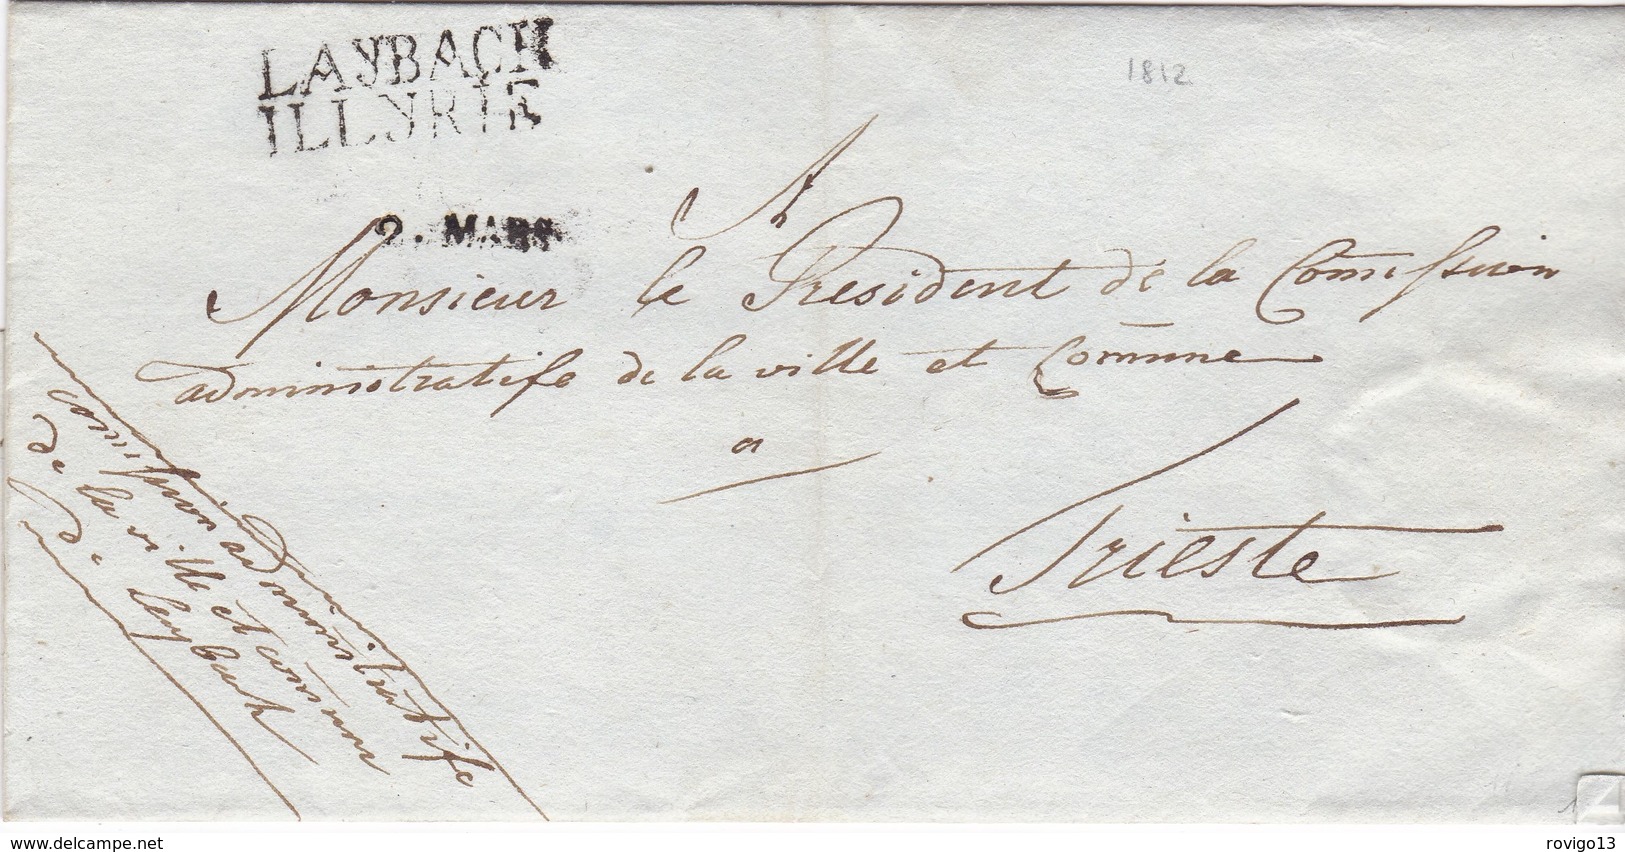 LAYBACH
ILLYRIE
1812
2. MARS
A
Monsieur le President de la Comission
administratife de la ville et Com̄une
a
Trieste
comission administratife
de la ville et com̄une
de laybach
www.delcampe.net
rovigo13